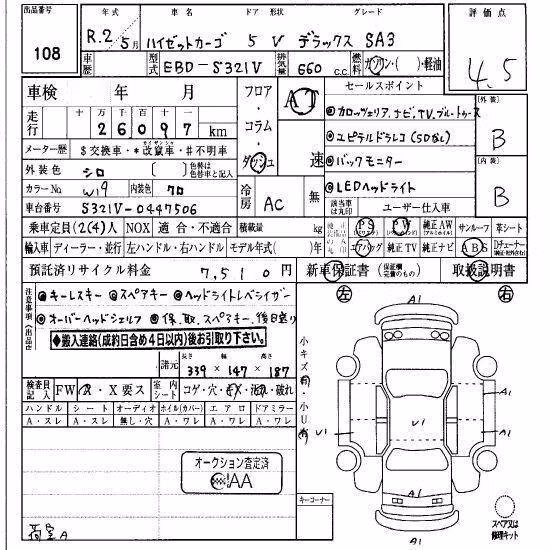 出品番号
108
年式
R.2年5月
車名
ハイゼットカーゴ
ドア 形状
5 V
グレード
デラックス SA3
評価点
4.5
車歴
型式
EBD-S321V
排気量
660 c.c.
燃料
ガソリン・( )・軽油
車検 年 月
フロア・コラム・ダッシュ
AT
速
セールスポイント
走行
十 万 千 百 十 一
2 6 0 9 7 km
◎カロッツェリア,ナビ,TV,ブルートゥース
◎ユピテルドラレコ(SDなし)
◎バックモニター
◎LEDヘッドライト
外装
B
内装
B
メーター歴 $交換車・*改竄車・#不明車
外装色 シロ
色替は色替車と記入
カラーNo W19
内装色 クロ
冷房 AC
無
車台番号 S321V-0447506
該当車は丸印
ユーザー仕入車
乗車定員(2(4)人
NOX 適合・不適合
積載量 kg
PS
PW
純正AW
サンルーフ
革シート
輸入車 ディーラー・並行
左ハンドル・右ハンドル
モデル年式( )年
エアバッグ
純正TV
純正ナビ
ABS
預託済リサイクル料金 7,510円
新車保証書
取扱説明書
注意事項
◎キーレスキー ◎スペアキー ◎ヘッドライトレベライザー
◎オーバーヘッドシェルフ ◎保,取,スペアキー,後日渡り
◆搬入連絡(成約日含め4日以内)後お引取り下さい。
諸元
長さ 339 × 幅 147 × 高さ 187
検査員記入
FW
R・X要ス
室内シート
コゲ・穴・
破れ
ハンドル シート オーディオ ホイル(カバー) エアロ ドアミラー
A・スレ A・スレ 無し・穴 A・ワレ A・ワレ A・ワレ
オークション査定済
AA
荷室A
小キズ有・小U有
キーコーナー
左
右
A1
A1
U1
U1
A1
A1
スペア又は
修理キット